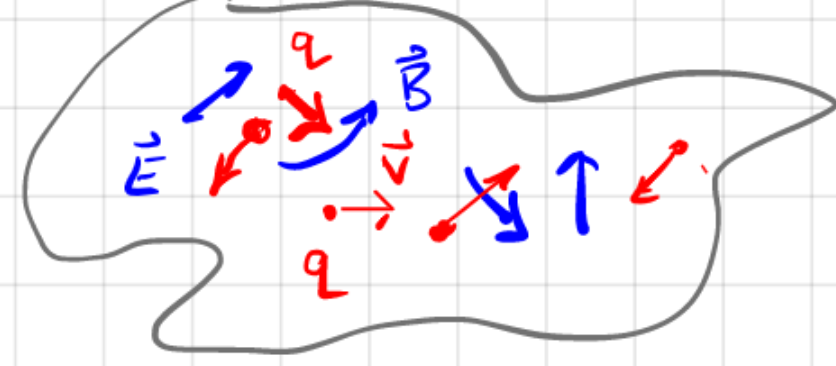 q
B⃗
E⃗
v⃗
q